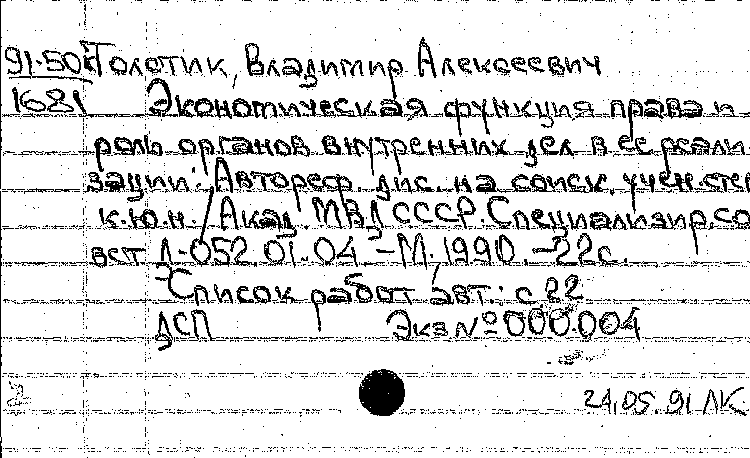 91-50к Толстик, Владимир Алексеевич
1681 Экономическая функция права и
роль органов внутренних дел в ее реали-
зации: Автореф. дис. на соиск. учен. степ.
к.ю.н. / Акад. МВД СССР. Специализир. со-
вет Д-052.01.04. -М., 1990. -22с.
-Список работ авт.: с.22
ДСП Экз № 000.004
2 24.05.91 ЛК